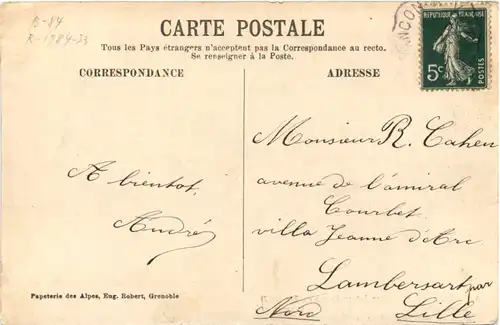 B-84
R-1984-33
CARTE POSTALE
Tous les Pays étrangers n'acceptent pas la Correspondance au recto.
Se renseigner à la Poste.
CORRESPONDANCE
ADRESSE
RÉPUBLIQUE FRANÇAISE
5c
POSTES
A bientot,
André
Monsieur R. Cahen
avenue de l'amiral
Courbet
villa Jeanne d'Arc
Lambersart par
Nord Lille
Papeterie des Alpes, Eug. Robert, Grenoble